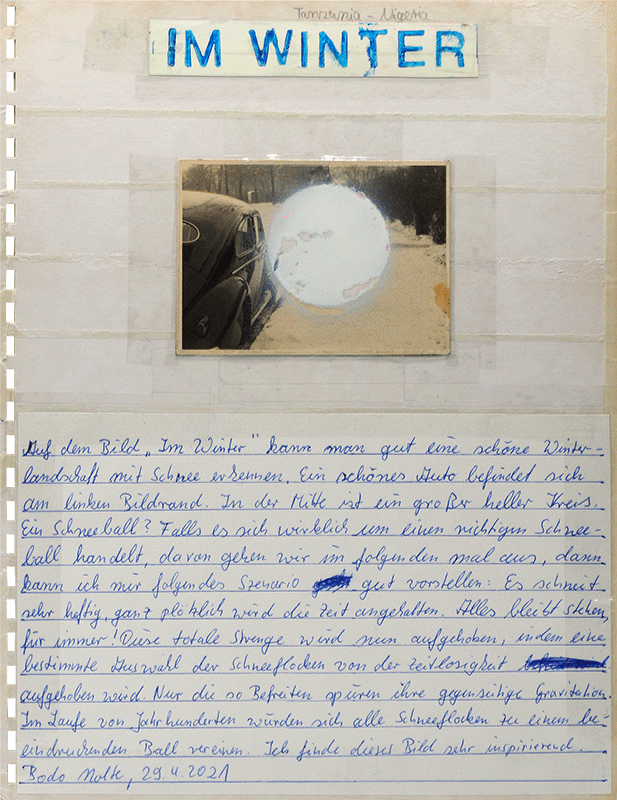 Tanzania - Nigeria
IM WINTER
Auf dem Bild „Im Winter" kann man gut eine schöne Winter-
landschaft mit Schnee erkennen. Ein schönes Auto befindet sich
am linken Bildrand. In der Mitte ist ein großer heller Kreis.
Ein Schneeball? Falls es sich wirklich um einen richtigen Schnee-
ball handelt, davon gehen wir im folgenden mal aus, dann
kann ich mir folgendes Szenario gut vorstellen: Es schneit
sehr heftig, ganz plötzlich wird die Zeit angehalten. Alles bleibt stehen,
für immer! Diese totale Strenge wird nun aufgehoben, indem eine
bestimmte Auswahl der Schneeflocken von der Zeitlosigkeit
aufgehoben wird. Nur die so Befreiten spüren ihre gegenseitige Gravitation.
Im Laufe von Jahrhunderten würden sich alle Schneeflocken zu einem be-
eindruckenden Ball vereinen. Ich finde dieses Bild sehr inspirierend.
Bodo Nolte, 29.4.2021